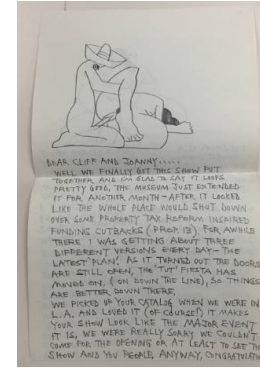 DEAR CLIFF AND JOANNY.....
WELL WE FINALLY GOT THIS SHOW PUT
TOGETHER AND I'M GLAD TO SAY IT LOOKS
PRETTY GOOD, THE MUSEUM JUST EXTENDED
IT FOR ANOTHER MONTH - AFTER IT LOOKED
LIKE THE WHOLE PLACE WOULD SHUT DOWN
OVER SOME PROPERTY TAX REFORM INSPIRED
FUNDING CUTBACKS (PROP. 13) FOR AWHILE
THERE I WAS GETTING ABOUT THREE
DIFFERENT VERSIONS EVERY DAY - THE
LATEST 'PLAN'. AS IT TURNED OUT THE DOORS
ARE STILL OPEN, THE 'TUT' FIESTA HAS
MOVED ON, (ON DOWN THE LINE), SO THINGS
ARE BETTER DOWN THERE.
WE PICKED UP YOUR CATALOG WHEN WE WERE IN
L.A. AND LOVED IT (OF COURSE!) IT MAKES
YOUR SHOW LOOK LIKE THE MAJOR EVENT
IT IS, WE WERE REALLY SORRY WE COULDN'T
COME FOR THE OPENING OR AT LEAST TO SEE THE
SHOW AND YOU PEOPLE. ANYWAY,